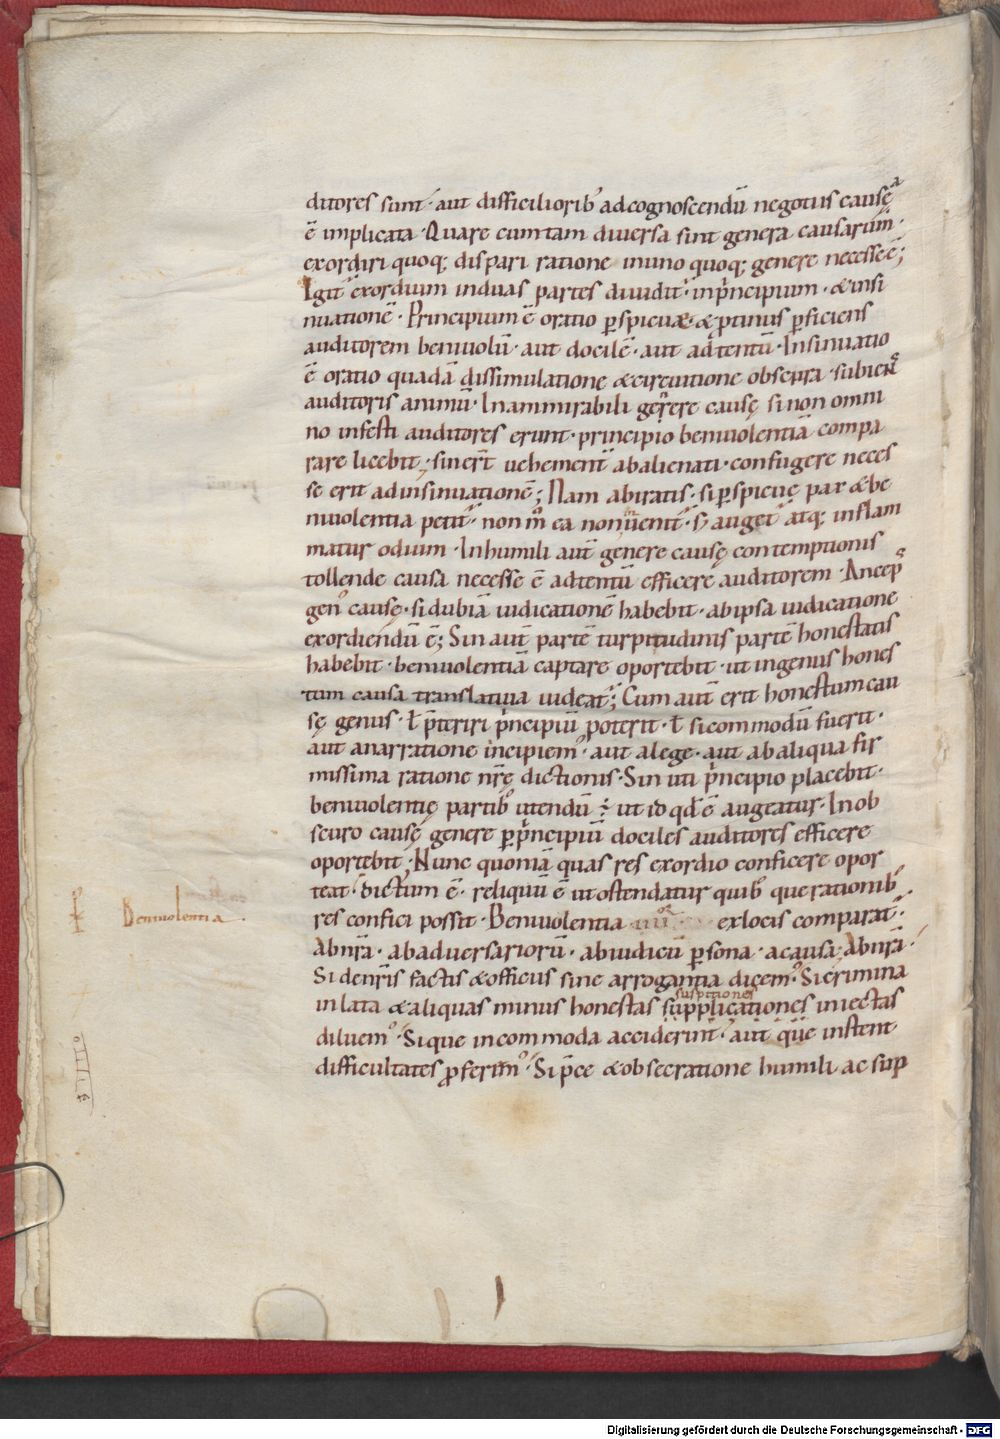 ditores sunt · aut difficiliorib' ad cognoscendū negotiis causę a
ē implicata · Quare cum tam diversa sint genera causarum ·
exordiri quoq; dispari ratione in uno quoq; genere necesse ē;
Igit exordium in duas partes dividit · in principium · & insi
nuationē · Principium ē oratio pspicuæ · & ptinus pficiens
auditorem benivolū · aut docilē · aut adtentū · Insinuatio
ē oratio quadā dissimulatione & circuitione obscura · subiens
auditoris animū · In ammirabili genere causę si non omni
no infesti auditores erunt · principio benivolentiā compa
rare licebit · sin erīt vehement abalienati · confugere neces
se erit ad insinuationē; Nam ab iratis · si pspicuę pax & be
nivolentia petit · non m̄ ea non invenit · s; auget atq; inflam
matur odium · In humili aut genere causę contemptionis
tollende causa necesse ē adtentū efficere auditorem · Anceps
gen' causę · si dubiā iudicationē habebit · ab ipsa iudicatione
exordiendū ē; Sin aut partē turpitudinis partē honestatis
habebit · benivolentiā captare oportebit · ut in genus hones
tum causa translativa videat; Cum aut erit honestum cau
sę genus · ł p̄teriri principiū poterit · ł si commodū fuerit ·
aut a narratione incipiem' · aut a lege · aut ab aliqua fir
missima ratione nr̄ę dictionis · Sin uti principio placebit ·
benivolentię partib' utendū ÷ ut id qd ē augeatur · In ob
scuro causę genere p principiū dociles auditores efficere
oportebit; Nunc quoniā quas res exordio conficere opor
teat · dictum ē · reliquū ē ut ostendatur quib' que rationib'
res confici possit · Benivolentia ex locis comparat ·
Benivolentia ·
Ab nr̄a · ab adversariorū · ab iudicū psona · a causa; Ab nr̄a ·
Si de nr̄is factis & officiis sine arrogantia dicem' · Si crimina
suspitiones
inlata & aliquas minus honestas supplicationes iniectas
diluem' · Si que incommoda acciderint · aut que instent
difficultates pferim' · Si p̄ce & obsecratione humili ac sup
Digitalisierung gefördert durch die Deutsche Forschungsgemeinschaft - DFG